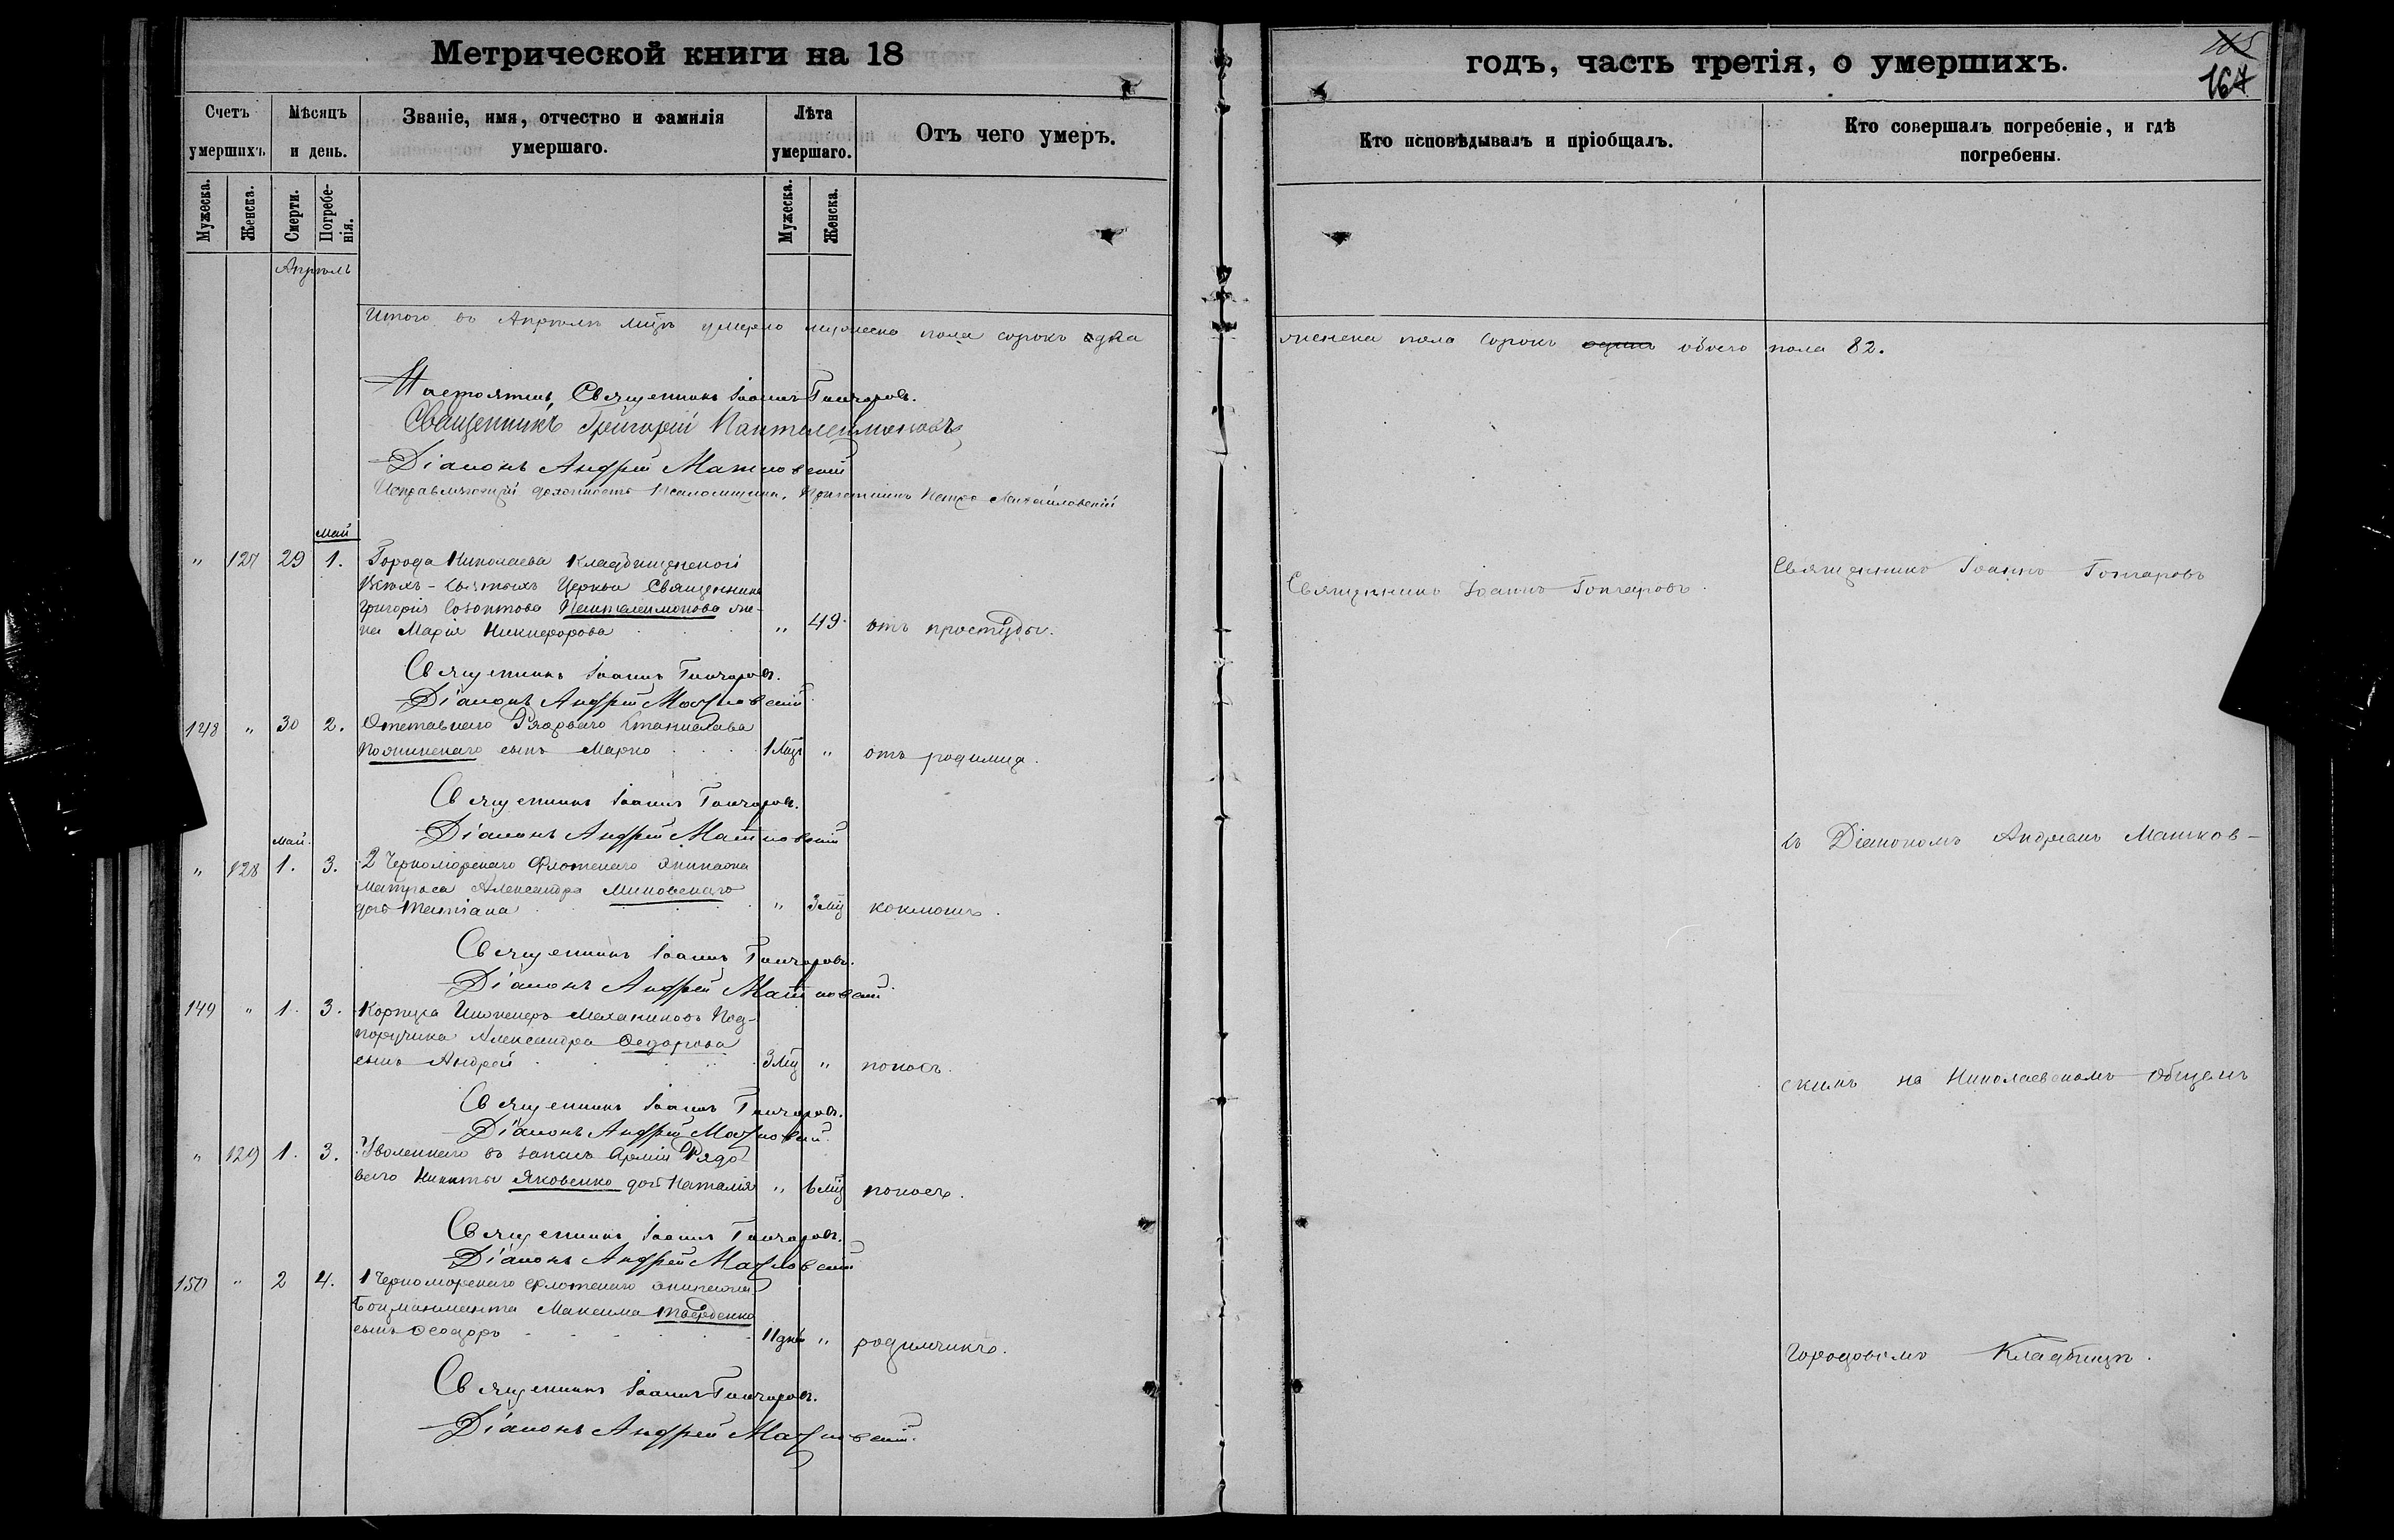 Метрической книги на 18
годъ, часть третія, о умершихъ.
167
Счетъ умершихъ.
Мѣсяцъ и день.
Званіе, имя, отчество и фамилія умершаго.
Лѣта умершаго.
Отъ чего умеръ.
Кто исповѣдывалъ и пріобщалъ.
Кто совершалъ погребеніе, и гдѣ погребены.
Мужеска.
Женска.
Смерти.
Погребе-
нія.
Мужеска.
Женска.
Апрѣль
Итого въ Апрѣлѣ мцѣ умерло мужеска пола сорокъ два
женска пола сорокъ обоего пола 82.
Настоятель, Священникъ Іоаннъ Гончаровъ.
Священникъ Григорій Пантелеимоновъ
Діаконъ Андрей Машковскій
Исправляющій должность Псаломщика, Причетникъ Петръ Михайловскій
Май
" 127 29 1. Города Николаева Кладбищенской
Всѣхъ-Святыхъ Церкви Священника
Григорія Созонтова Пантелеимонова же-
на Марія Никифорова " 49. отъ простуды.
Священникъ Іоаннъ Гончаровъ.
Священникъ Іоаннъ Гончаровъ
Священникъ Іоаннъ Гончаровъ.
Діаконъ Андрей Машковскій
148 " 30 2. Отставнаго Рядоваго Станислава
сынъ Марко 1 Мцъ " отъ родимца.
Священникъ Іоаннъ Гончаровъ.
Діаконъ Андрей Машковскій
съ Діакономъ Андреемъ Машков-
Май.
" 128 1. 3. 2 Черноморскаго Флотскаго экипажа
Матроса Александра Миновскаго
дочь Татіана " 3 Мц коклюшъ.
Священникъ Іоаннъ Гончаровъ.
Діаконъ Андрей Машковскій
149 " 1. 3. Корпуса Инженеръ Механиковъ Под-
поручика Александра Ѳедорова
сынъ Андрей 3 Мц " поносъ.
скимъ на Николаевскомъ Общемъ
Священникъ Іоаннъ Гончаровъ.
Діаконъ Андрей Машковскій.
" 129 1. 3. Уволеннаго въ запасъ Арміи Рядо-
ваго Никиты Яковенко дочь Наталія " 6 мц поносъ.
Священникъ Іоаннъ Гончаровъ.
Діаконъ Андрей Машковскій
150 " 2 4. 1 Черноморскаго флотскаго экипажа
Боцманмаата Максима
сынъ Ѳеодоръ 11 дней " родимчикъ.
Городовомъ Кладбищѣ.
Священникъ Іоаннъ Гончаровъ.
Діаконъ Андрей Машковскій.